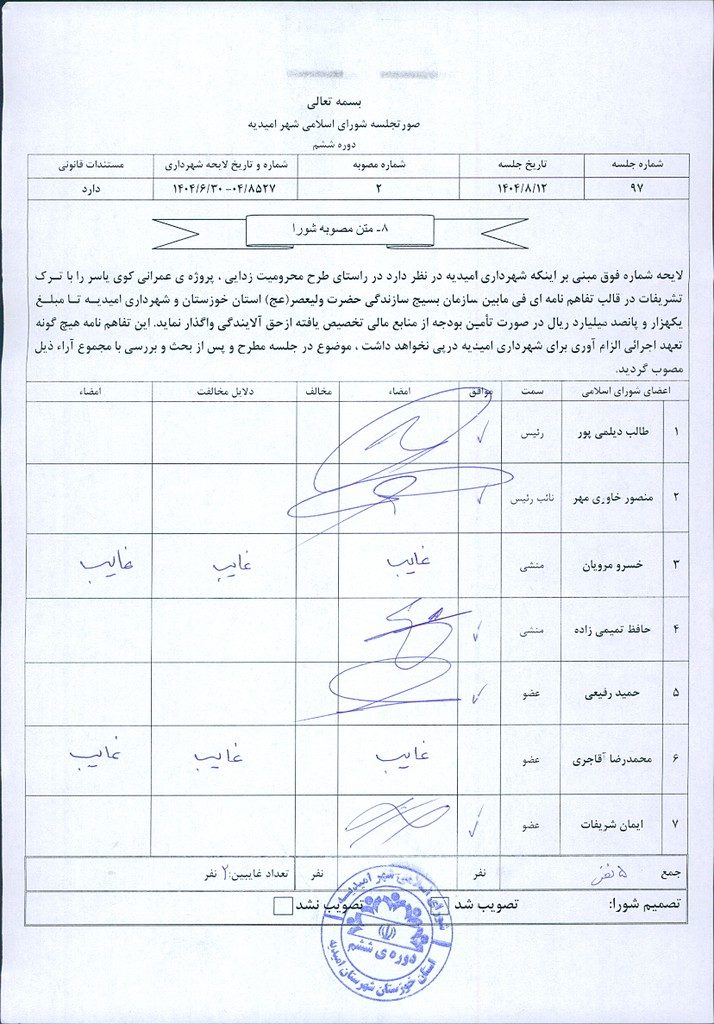 بسمه تعالی
صورتجلسه شورای اسلامی شهر امیدیه
دوره ششم
شماره جلسه تاریخ جلسه شماره مصوبه شماره و تاریخ لایحه شهرداری مستندات قانونی
۹۷ ۱۴۰۴/۸/۱۲ ۲ ۰۴/۸۵۲۷-۱۴۰۴/۶/۳۰ دارد
۸ـ متن مصوبه شورا
لایحه شماره فوق مبنی بر اینکه شهرداری امیدیه در نظر دارد در راستای طرح محرومیت زدایی ، پروژه ی عمرانی کوی یاسر را با ترک
تشریفات در قالب تفاهم نامه ای فی مابین سازمان بسیج سازندگی حضرت ولیعصر(عج) استان خوزستان و شهرداری امیدیه تا مبلغ
یکهزار و پانصد میلیارد ریال در صورت تأمین بودجه از منابع مالی تخصیص یافته ازحق آلایندگی واگذار نماید. این تفاهم نامه هیچ گونه
تعهد اجرائی الزام آوری برای شهرداری امیدیه درپی نخواهد داشت ، موضوع در جلسه مطرح و پس از بحث و بررسی با مجموع آراء ذیل
مصوب گردید.
اعضای شورای اسلامی سمت موافق امضاء مخالف دلایل مخالفت امضاء
۱ طالب دیلمی پور رئیس
۲ منصور خاوری مهر نائب رئیس
۳ خسرو مرویان منشی غایب غایب غایب
۴ حافظ تمیمی زاده منشی
۵ حمید رفیعی عضو
۶ محمدرضا آقاجری عضو غایب غایب غایب
۷ ایمان شریفات عضو
جمع ۵ نفر نفر نفر تعداد غایبین:۲ نفر
تصمیم شورا: تصویب شد تصویب نشد
شورای اسلامی شهر امیدیه
دوره ی ششم
استان خوزستان شهرستان امیدیه